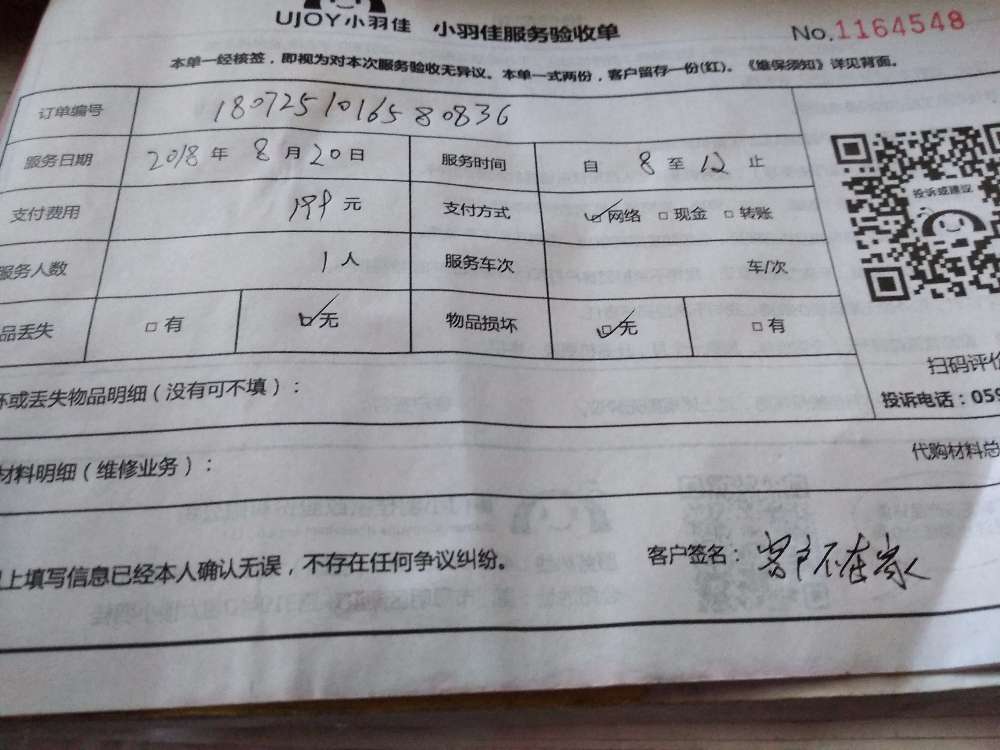 UJOY小羽佳 小羽佳服务验收单 No.1164548
本单一经核签，即视为对本次服务验收无异议。本单一式两份，客户留存一份(红)。《维保须知》详见背面。
订单编号 1807251016580836
服务日期 2018年8月20日 服务时间 自8至12止
支付费用 199元 支付方式 网络 现金 转账
服务人数 1人 服务车次 车/次
品丢失 有 无 物品损坏 无 有
投诉或建议
扫码评价
投诉电话：059
坏或丢失物品明细（没有可不填）：
材料明细（维修业务）： 代购材料总
以上填写信息已经本人确认无误，不存在任何争议纠纷。 客户签名：客户不在家